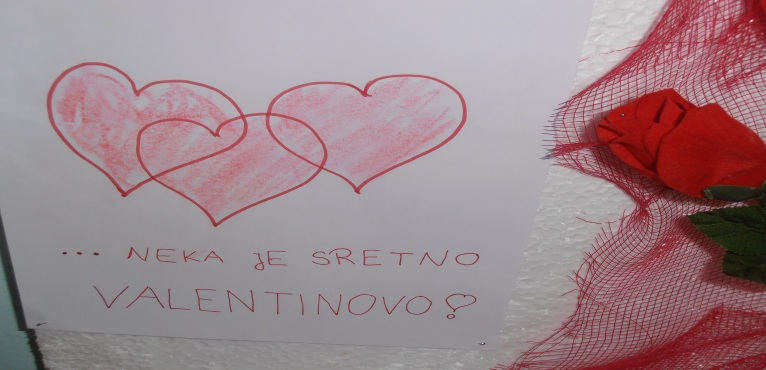 ... NEKA JE SRETNO
VALENTINOVO!